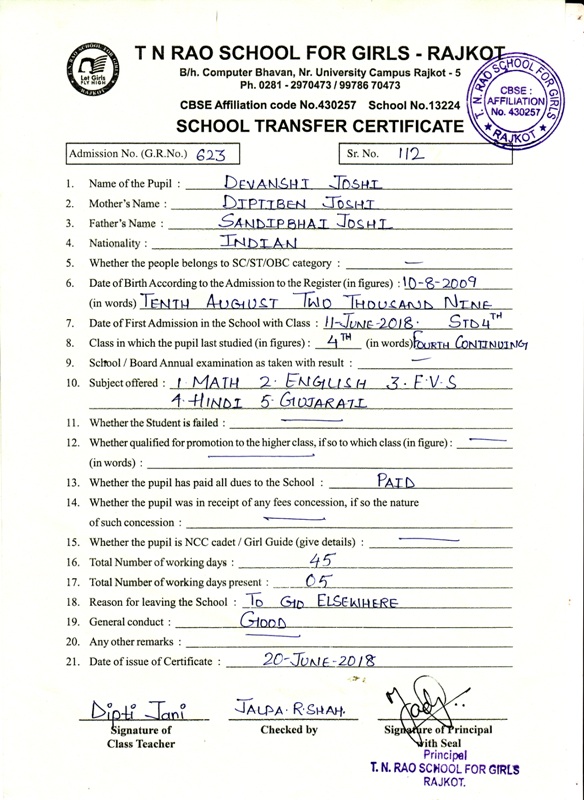 T N RAO SCHOOL FOR GIRLS - RAJKOT
B/h. Computer Bhavan, Nr. University Campus Rajkot - 5
Ph. 0281 - 2970473 / 99786 70473
CBSE Affiliation code No.430257 School No.13224
SCHOOL TRANSFER CERTIFICATE
T. N. RAO SCHOOL FOR GIRLS
CBSE :
AFFILIATION
No. 430257
★ RAJKOT ★
T. N. RAO SCHOOL FOR GIRLS
Let Girls
FLY HIGH
RAJKOT
Admission No. (G.R.No.) 623 Sr. No. 112
1. Name of the Pupil : DEVANSHI JOSHI
2. Mother's Name : DIPTIBEN JOSHI
3. Father's Name : SANDIPBHAI JOSHI
4. Nationality : INDIAN
5. Whether the people belongs to SC/ST/OBC category : —
6. Date of Birth According to the Admission to the Register (in figures) : 10-8-2009
(in words) TENTH AUGUST TWO THOUSAND NINE
7. Date of First Admission in the School with Class : 11-JUNE-2018. STD 4TH
8. Class in which the pupil last studied (in figures) : 4TH (in words) FOURTH CONTINUING
9. School / Board Annual examination as taken with result : —
10. Subject offered : 1. MATH 2. ENGLISH 3. E.V.S
4. HINDI 5. GUJARATI
11. Whether the Student is failed : —
12. Whether qualified for promotion to the higher class, if so to which class (in figure) : —
(in words) : —
13. Whether the pupil has paid all dues to the School : PAID
14. Whether the pupil was in receipt of any fees concession, if so the nature
of such concession : —
15. Whether the pupil is NCC cadet / Girl Guide (give details) : —
16. Total Number of working days : 45
17. Total Number of working days present : 05
18. Reason for leaving the School : TO GO ELSEWHERE
19. General conduct : GOOD
20. Any other remarks : —
21. Date of issue of Certificate : 20-JUNE-2018
Dipti Jani JALPA.R.SHAH.
Signature of Checked by Signature of Principal
Class Teacher with Seal
Principal
T. N. RAO SCHOOL FOR GIRLS
RAJKOT.